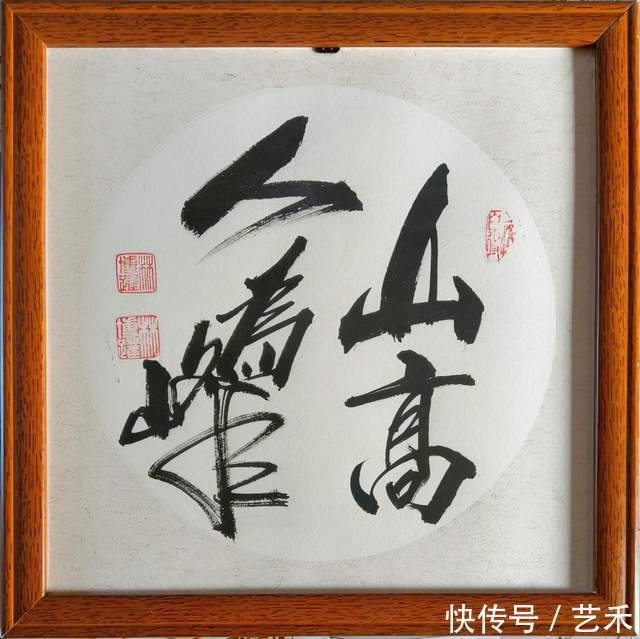 山高
人為峰
快传号 / 艺禾